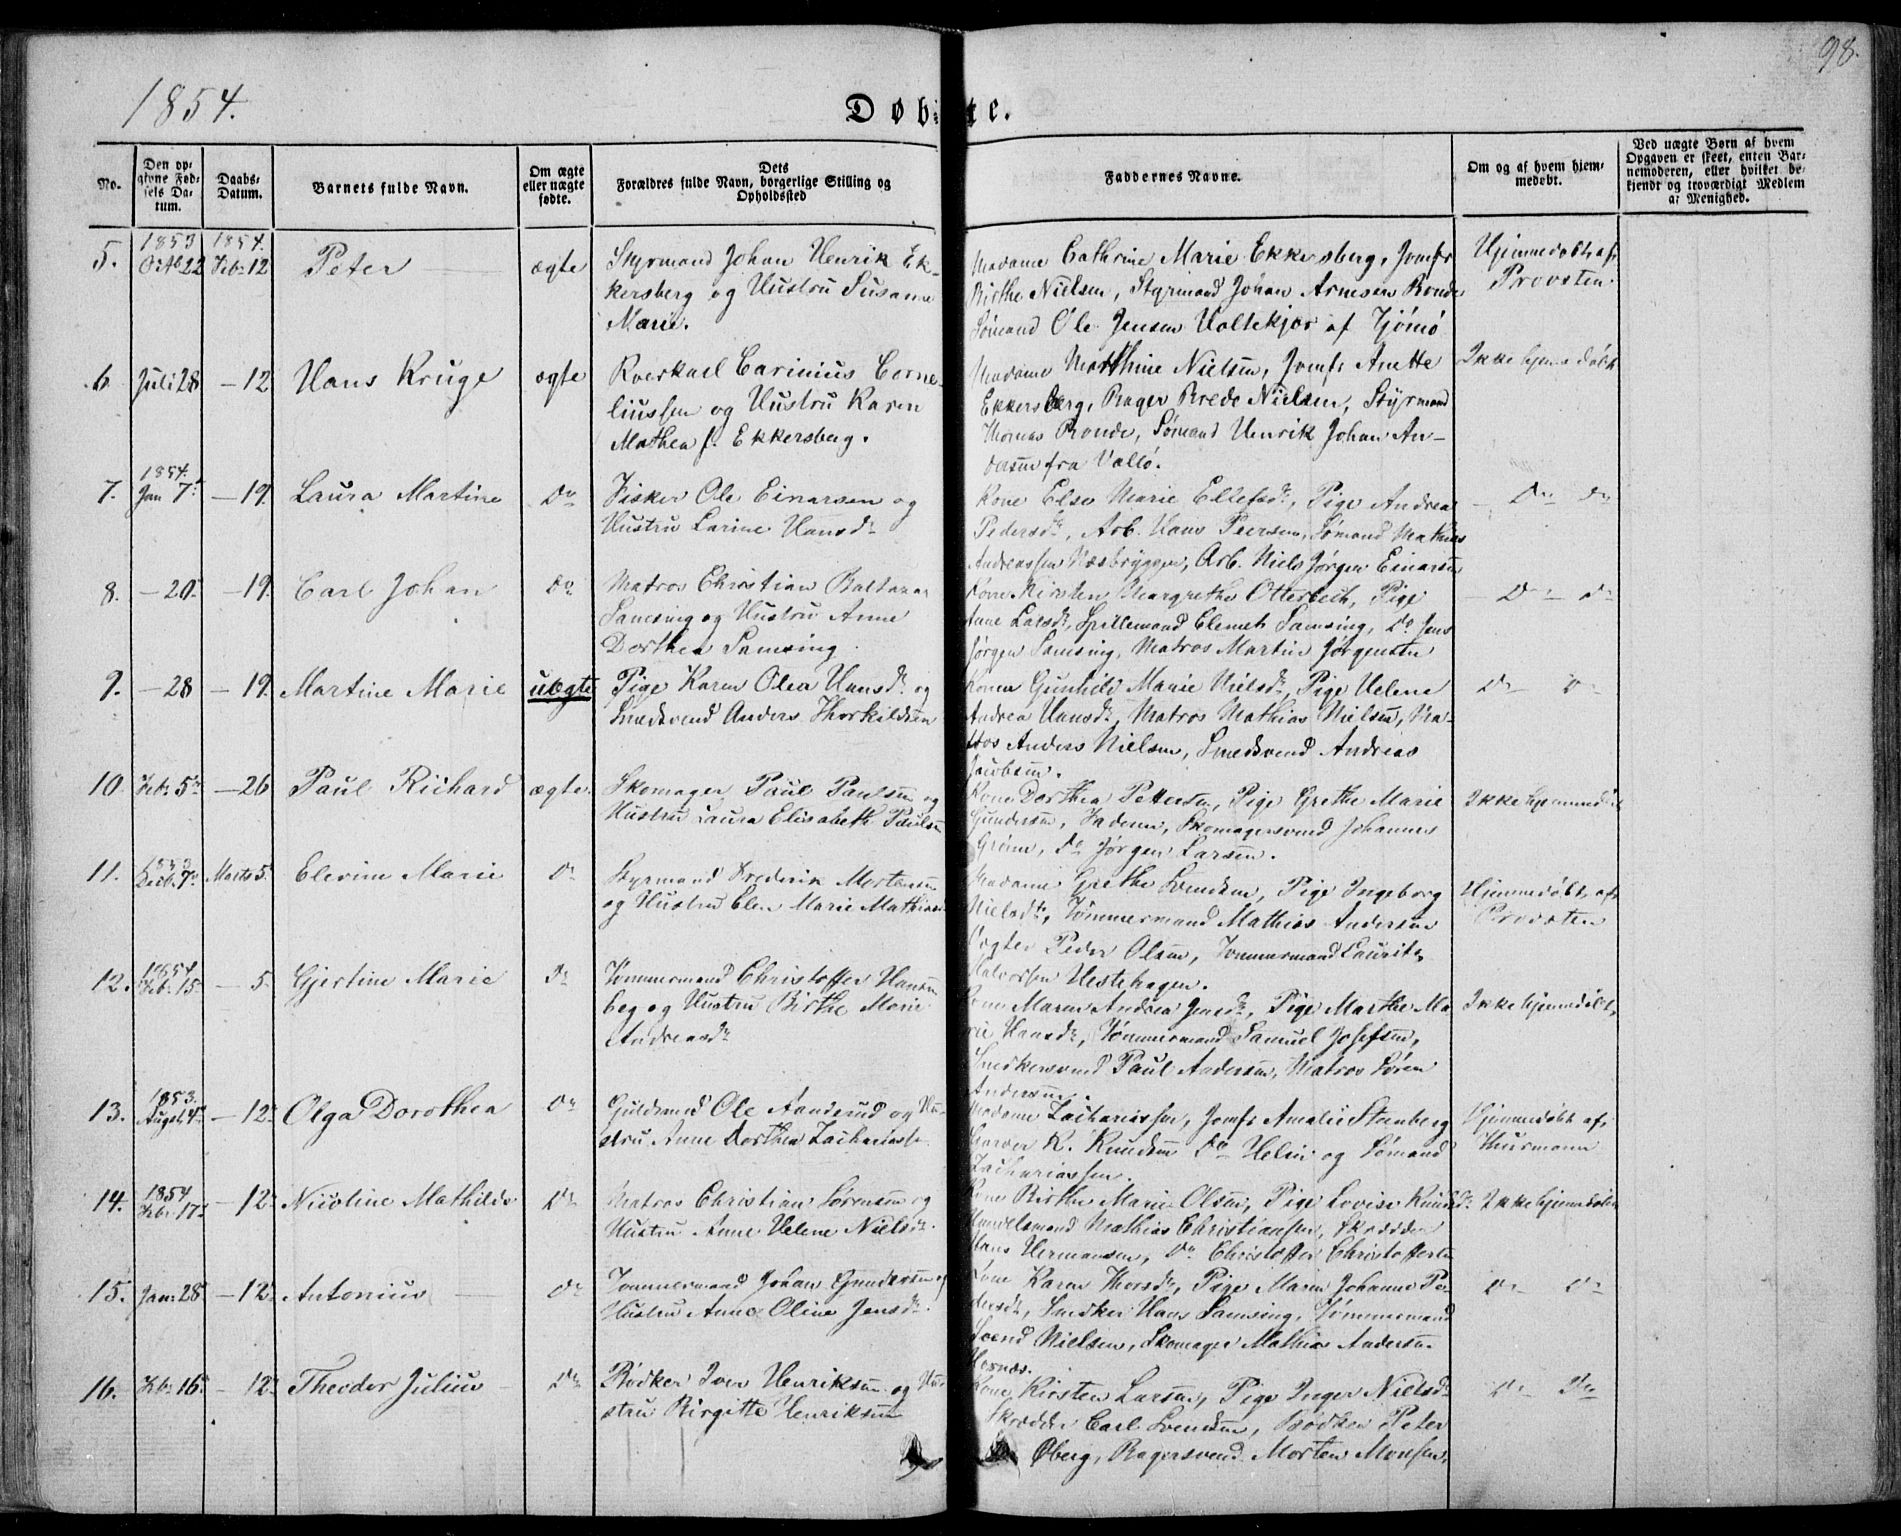 98.
1854.
Døbte.
No.
Den op-
givne Fød-
sels Da-
tum.
Daabs-
Datum.
Barnets fulde Navn.
Om ægte
eller uægte
fødte.
Dets
Forældres fulde Navn, borgerlige Stilling og
Opholdssted
Faddernes Navne.
Om og af hvem hjem-
medøbt.
Ved uægte Børn af hvem
Opgaven er skeet, enten Bar-
nemoderen, eller hvilket be-
kjendt og troværdigt Medlem
af Menighed.
5.
1853
Octb 22
1854.
Feb: 12
Peter
ægte
Styrmand Johan Henrik Ek-
kersberg og Hustru Susanne
Marie.
Madame Cathrine Marie Ekkersberg, Jomfr
Birthe Nielsen, Styrmand Johan Arnesen Ronde
Sømand Ole Jensen Holtekjær af Tjømø
Hjemmedøbt af
Provsten.
6
Juli 28
- 12
Hans Kruge
ægte
Carinius Corne-
liussen og Hustru Karen
Mathea f. Ekkersberg.
Madame Mathine Nielsen, Jomfr Anette
Ekkersberg, Bager Brede Nielsen, Styrmand
Thomas Ronde, Sømand Henrik Johan An-
dersen fra Vallø.
Ikke hjemmedøbt
7.
1854.
Jan 7
- 19.
Laura Martine
Do
Fisker Ole Einarsen og
Hustru Larine Hansdr
Kone Else Marie Ellefsdr, Pige Andrea
Pedersdr, Arb. Hans Peersen, Sømand Mathias
Andreassen Næsbryggen, Arb. Niels Jørgen Einarsen
- Do Do
8.
- 20
- 19.
Carl Johan
Do
Matros Christian Baltazar
Samsing og Hustru Anne
Dorthea Samsing.
Kone Kirsten Margrethe Otterbech, Pige
Anne Larsdr, Spillemand Clemet Samsing, Do Jens
Jørgen Samsing, Matros Martin Jørgensen
- Do - Do
9.
- 28
- 19.
Martine Marie
uægte
Pige Karen Olea Hansdr og
Smedsvend Anders Thorkildsen
Konen Gunhild Marie Nielsdr, Pige Helene
Andrea Hansdr, Matros Mathias Nielsen, Ma-
tros Anders Nielsen, Smedsvend Andreas
Jacobsen.
Do Do
10
Feb: 5
- 26
Paul Richard
ægte
Skomager Paul Paulsen og
Hustru Laura Elisabeth Paulsen
Kone Dorthea Pettersen, Pige Grethe Marie
Gundersen, Faderen, Skomagersvend Johannes
Grøne, Do Jørgen Larsen.
Ikke hjemmedøbt
11.
1853
Decb. 7
Marts 5
Elevine Marie
Do
Styrmand Frederik Mortensen
og Hustru Elen Marie Mathias
Madame Grethe Svendsen, Pige Ingeborg
Nielsdr, Tømmermand Mathias Andersen
Peder Olsen, Tømmermand Laurits
Halvorsen Hestehagen.
Hjemmedøbt af
Provsten
12.
1854
Feb: 15
- 5
Gjertine Marie
Do
Tømmermand Christoffer Hansen
og Hustru Birthe Marie
Andreasdr
Kone Maren Andrea Jensdr, Pige Marthe Ma-
rie Hansdr, Tømmermand Samuel Josefsen,
Snedkersvend Paul Andersen, Matros Søren
Andersen.
Ikke hjemmedøbt,
13.
1853.
August 4
- 12
Olga Dorothea
Do
Guldsmed Ole Aanderud og Hu-
stru Anne Dorthea Zachariassen
Madame Zachariassen, Jomfr Amalie Stenberg
Garver K. Knudsen Do Helm og Sømand
Zachariassen.
Hjemmedøbt af
Thurmann
14.
1854
Feb: 17
- 12
Nicoline Mathilde
Do
Matros Christian Sørensen og
Hustru Anne Helene Nielsdr.
Kone Birthe Marie Olsen, Pige Lovise Knudsdr.
Handelsmand Mathias Christiansen, Skrædder
Hans Hermansen, Do Christoffer Christoffersen
Ikke hjemmedøbt
15.
Jan: 28
- 12
Antonius
Do
Tømmermand Johan Gundersen og
Hustru Anne Oline Jensdr.
Kone Karen Thorsdr, Pige Maren Johanne Pe-
dersdr, Snedker Hans Samsing, Tømmermand
Svend Nielsen, Skomager Mathias Andersen
Hernæs.
Do Do
16.
Feb: 16
- 12
Theodor Julius
Do
Bødker Iver Henriksen og Hu-
stru Birgitte Henriksen
Kone Kirsten Larsen, Pige Inger Nielsdr
Skrædder Carl Svendsen, Bødker Peter
Øberg, Bagersvend Morten Monsen.
Do Do